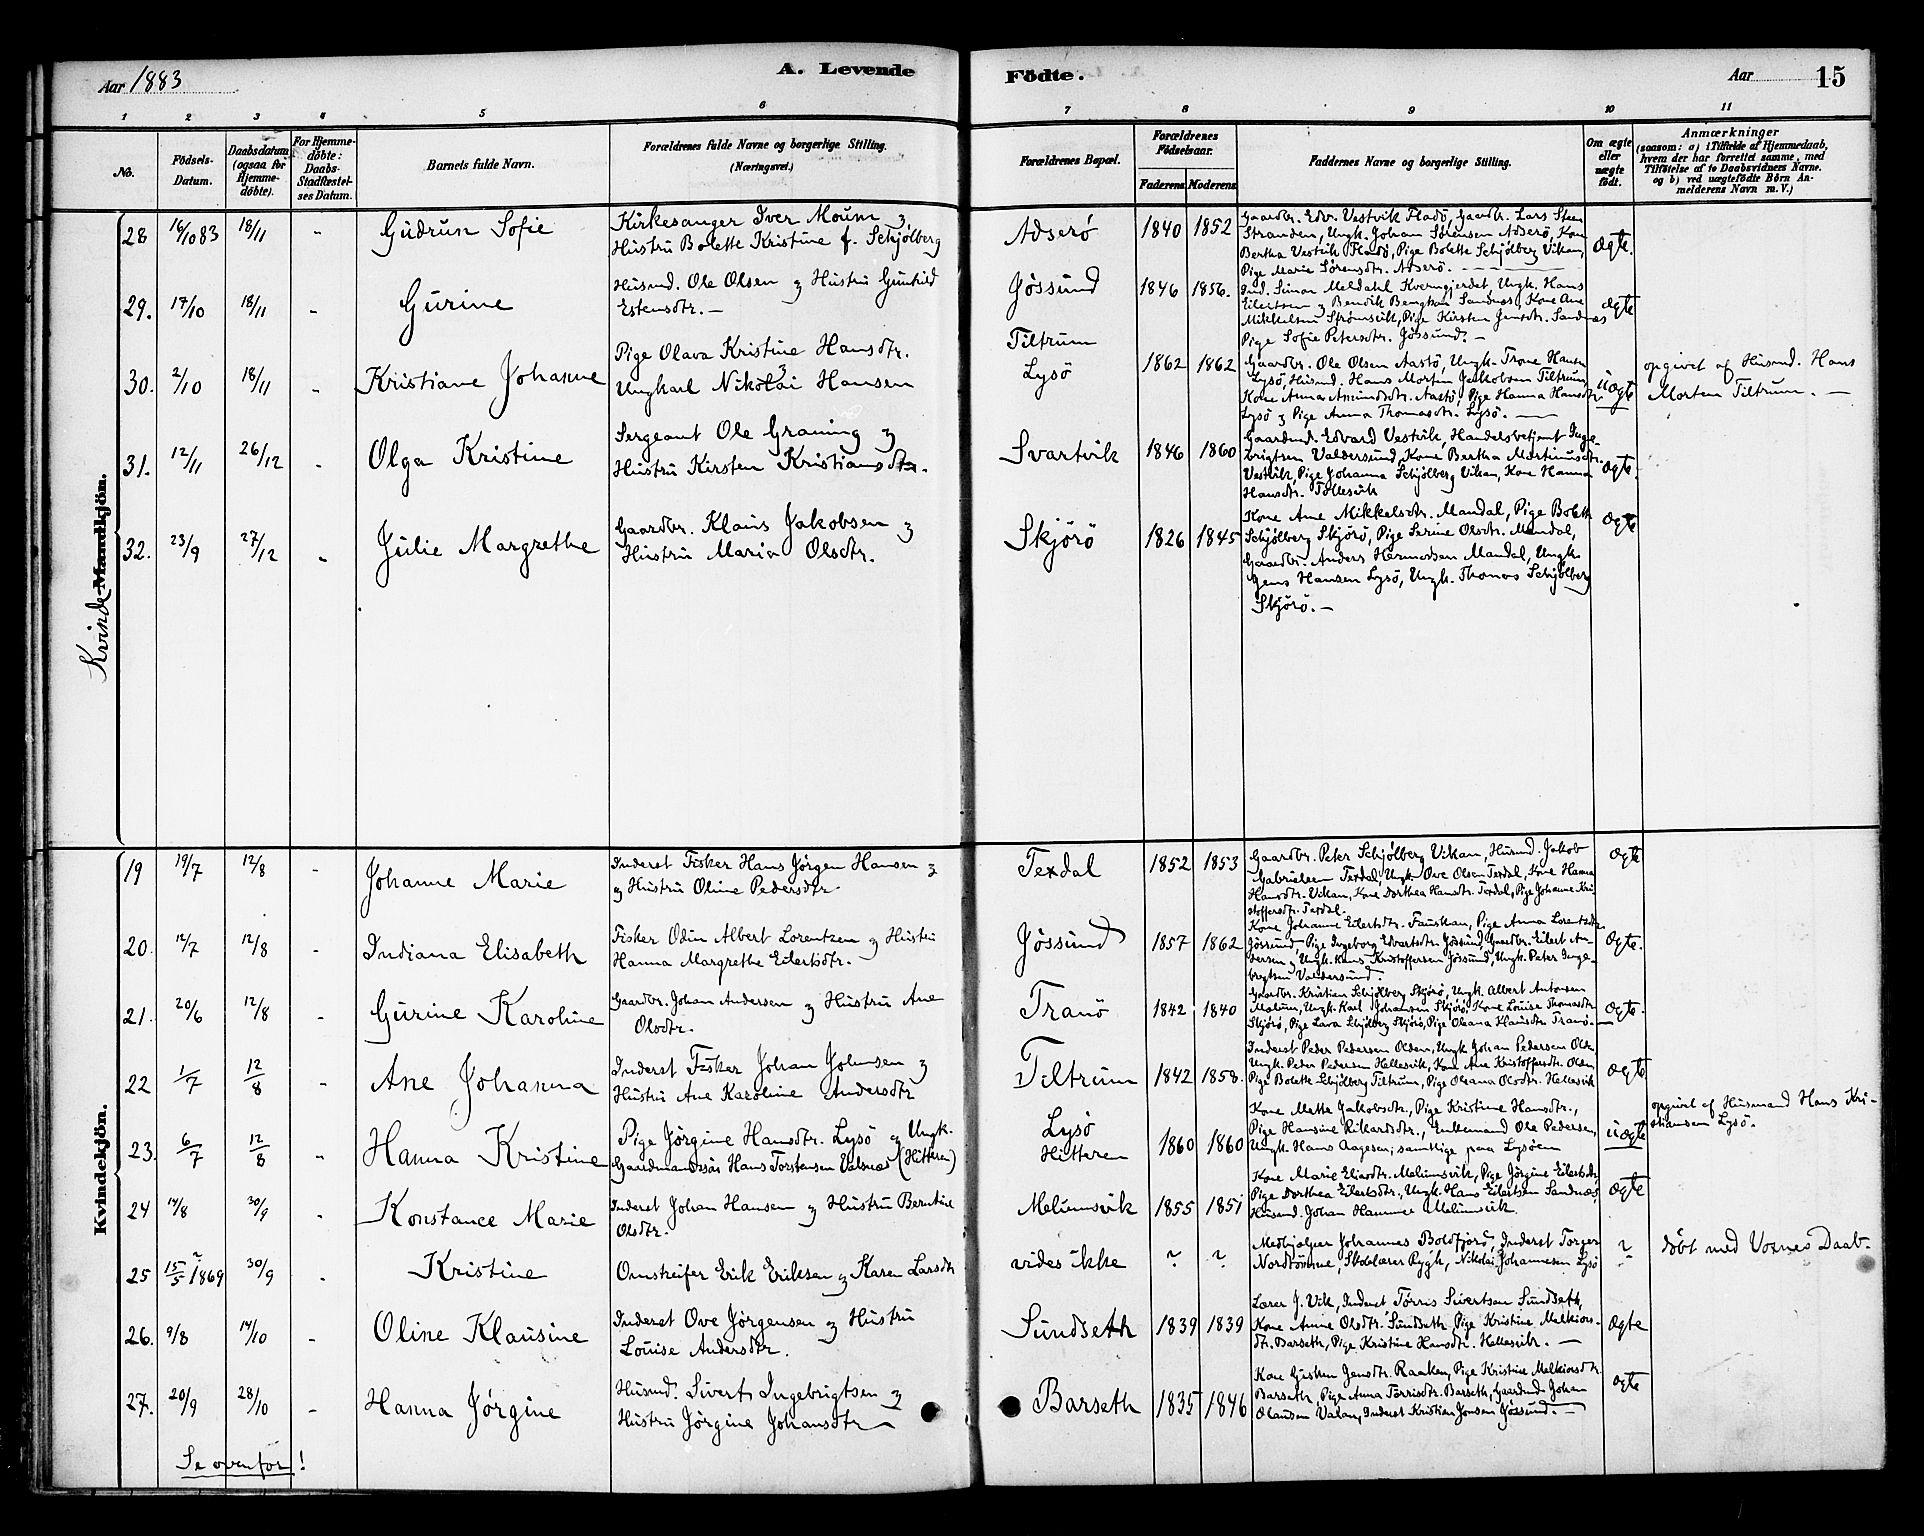 Aar 1883
A. Levende
Födte.
Aar
15
1 2 3 4 5 6 7 8 9 10 11
No.
Födsels-Datum.
Daabsdatum (ogsaa for Hjemme-döbte).
For Hjemme-döbte: Daabs-Stadfæstel-ses Datum.
Barnets fulde Navn.
Forældrenes fulde Navne og borgerlige Stilling. (Næringsvei.)
Forældrenes Bopæl.
Forældrenes Födselsaar.
Faderens Moderens
Faddernes Navne og borgerlige Stilling.
Om ægte eller uægte födt.
Anmærkninger
(saasom: a) i Tilfælde af Hjemmedaab, hvem der har forrettet samme, med Tilföielse af to Daabsvidners Navne, og b) ved uægtefödte Börn An-melderens Navn m. V.)
Kvinde Mandkjön.
28 16/10 83 18/11 - Gudrun Sofie
Kirkesanger Iver Moum &
Hustru Bolette Kristine f. Schjølberg
Adserö 1840 1852
Gaardbr. Edv. Vestvik Fladö, Gaardb. Lars Steen
Stranden, Ungk. Johan Sørensen Adserö, Kone
Bertha Vestvik Fladö, Pige Bolette Schjølberg Vikan,
Pige Marie Sörensdtr. Adserö.
Ægte.
29. 17/10 18/11 - Gurine
Husmd. Ole Olsen & Hustru Gunhild
Estensdtr. —
Jössund 1846 1856.
Ind. Simon Meldahl Kverngjerdet, Ungk. Hans
Eilertsen & Bendik Bengtson Sandnes, Kone Ane
Mikkelsen Strømsvik, Pige Kirsten Jensdtr. Sandnes
Pige Sofie Petersdtr. Jössund. —
ægte
30. 2/10 18/11 - Kristiane Johanne
Pige Olava Kristine Hansdtr.
Ungkarl Nikolai Hansen
Tiltrum
Lysö 1862 1862
Gaardbr. Ole Olsen Aastö, Ungk. Trone Hansen
Lysö, Husmd. Hans Morten Jakobsen Tiltrum,
Kone Anna Amundsdtr. Aastö, Pige Hanna Hansdtr.
Lysö & Pige Anna Thomasdtr. Lysö. —
uægte
opgivet af Husmd. Hans
Morten Tiltrum. —
31. 12/11 26/12 - Olga Kristine
Sergeant Ole Graning &
Hustru Kirsten Kristiansdtr.
Svartvik 1846 1860
Gaardmd. Edvard Vestvik, Handelsbetjent Inge-
brigtsen Valdersund, Kone Bertha Martinusdtr.
Vestvik, Pige Johanna Schjølberg Vikan, Kone Hanna
Hansdtr. Tollesvik
ægte
32. 23/9 27/12 - Julie Margrethe
Gaardbr. Klaus Jakobsen &
Hustru Maria Olsdtr.
Skjörö 1826 1845
Kone Ane Mikkelsdtr. Mandal, Pige Boleth
Schjølberg Skjörö, Pige Serine Olsdtr. Mandal,
Gaardbr. Anders Hermodsen Mandal, Ungk.
Jens Hansen Lysö, Ungk. Thomas Schjølberg
Skjörö. —
ægte
Kvindekjön.
19 19/7 12/8 - Johanne Marie
Inderst Fisker Hans Jörgen Hansen &
& Hustru Oline Pedersdtr.
Texdal 1852 1853
Gaardbr. Peter Schjølberg Vikan, Husmd. Jakob
Gabrielsen Texdal, Ungk. Ove Olsen Texdal, Kone Hanna
Hansdtr. Vikan, Kone Dorthea Hansdtr. Texdal, Pige Johanne Kri-
stoffersdtr. Texdal.
ægte
20. 12/7 12/8 - Indiana Elisabeth
Fisker Odin Albert Lorentzen & Hustru
Hanna Margrethe Eilertsdtr.
Jössund 1857 1862
Kone Johanne Eilertsdtr. Fauskan, Pige Anna Lorentzdtr.
Jössund, Pige Ingeborg Edvartsdtr. Jössund, Gaardbr. Eilert An-
dersen & Ungk. Hans Kristoffersen Jössund, Ungk. Peter Inge-
brigtsen Valdersund.
ægte.
21. 20/6 12/8 - Gurine Karoline
Gaardbr. Johan Andersen & Hustru Ane
Olsdtr.
Tranö 1842 1840
Gaardbr. Kristian Schjølberg Skjörö, Ungk. Albert Antonsen
Ungk. Karl Johansen Skjörö, Kone Louise Thomasdtr.
Skjörö, Pige Lava Schjølberg Skjörö, Pige Oleana Klausdtr. Tranö. —
ægte.
22 1/7 12/8 - Ane Johanna
Inderst Fisker Johan Johnsen &
Hustru Ane Karoline Andersdtr
Tiltrum 1842 1858.
Inderst Peder Pedersen Olden, Ungk. Johan Pedersen Olden
Ungk. Peder Pedersen Hellesvik, Kone Ane Kristoffersdtr. Olden
Pige Bolette Schjølberg Tiltrum, Pige Oleana Olsdtr. Hellesvik
ægte
23. 6/7 12/8 - Hanna Kristine
Pige Jörgine Hansdtr. Lysö & Ungk.
Gaardmandssøn Hans Torstensen Valsnes (Hitteren)
Lysö
Hitteren 1860 1860
Kone Metta Jakobsdtr., Pige Kristine Hansdtr.,
Pige Hansine Rikartsdtr., Enkemand Ole Pedersen,
Ungk. Hans Aagesen; samtlige paa Lysöen
uægte
opgivet af Husmand Hans Kri-
stiansen Lysö.
24 14/8 30/9 - Konstance Marie
Inderst Johan Hansen & Hustru Berntine
Olsdtr.
Meliumsvik 1855 1851
Kone Marie Eliasdtr. Meliumsvik, Pige Jörgine Eilertsdtr,
Pige Dorthea Eilertsdtr., Ungk. Hans Eilertsen Sandnes,
Husmd. Johan Hammer Meliumsvik
ægte
25 15/5 1869 ? 30/9 - Kristine
Omstreifer Erik Eriksen & Karen Larsdtr
vides ikke ? ?
Medhjelper Johannes Boldfjorö, Inderst Torger
Nordtömme, Skolelærer Rygh, Nikolai Johannesen Lysö
?
döbt med Voxnes Daab.
26. 9/8 14/10 - Oline Klausine
Inderst Ove Jørgensen & Hustru
Louise Andersdtr.
Sundseth 1839 1839
Lærer J. Vik, Inderst Törris Sivertsen Sundseth,
Kone Anne Olsdtr. Sundseth, Pige Kristine Melkiors-
dtr. Barseth, Pige Kristine Hansdtr. Hellesvik. —
ægte
27. 20/9 28/10 - Hanna Jörgine
Husmd. Sivert Ingebrigtsen &
Hustru Jörgine Johansdtr
Barseth 1835 1846
Kone Gjertrud Jensdtr. Raaken, Pige Kristine Melkiorsdtr.
Barseth, Pige Anna Törrisdtr. Barseth, Gaardmd Johan
Olausen Valan, Inderst Kristian Jonsen Jössund. —
ægte
Se ovenfor!